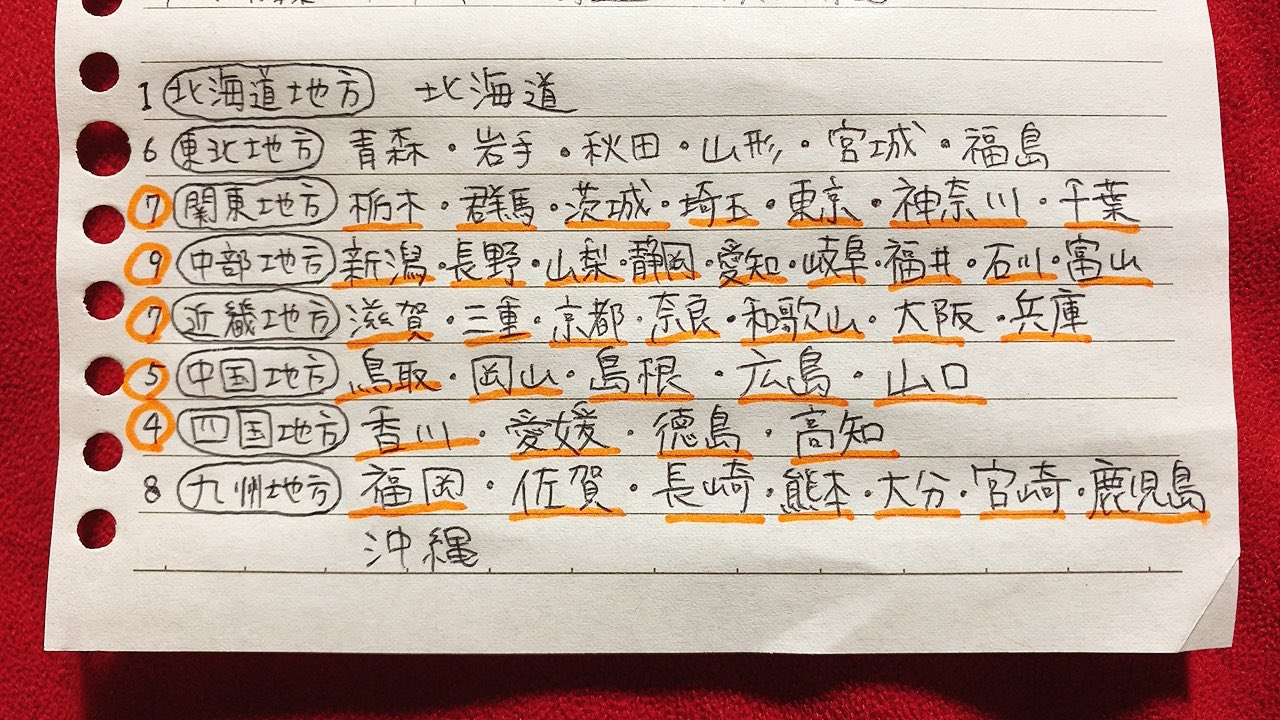 1 北海道地方 北海道
6 東北地方 青森・岩手・秋田・山形・宮城・福島
7 関東地方 栃木・群馬・茨城・埼玉・東京・神奈川・千葉
9 中部地方 新潟・長野・山梨・静岡・愛知・岐阜・福井・石川・富山
7 近畿地方 滋賀・三重・京都・奈良・和歌山・大阪・兵庫
5 中国地方 鳥取・岡山・島根・広島・山口
4 四国地方 香川・愛媛・徳島・高知
8 九州地方 福岡・佐賀・長崎・熊本・大分・宮崎・鹿児島
沖縄